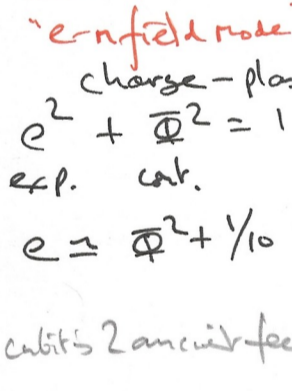 "e-n field mode
charge - pla
e² + Φ² = 1
exp. cont.
e ≃ Φ² + 1/10
cubit is 2 ancient fee